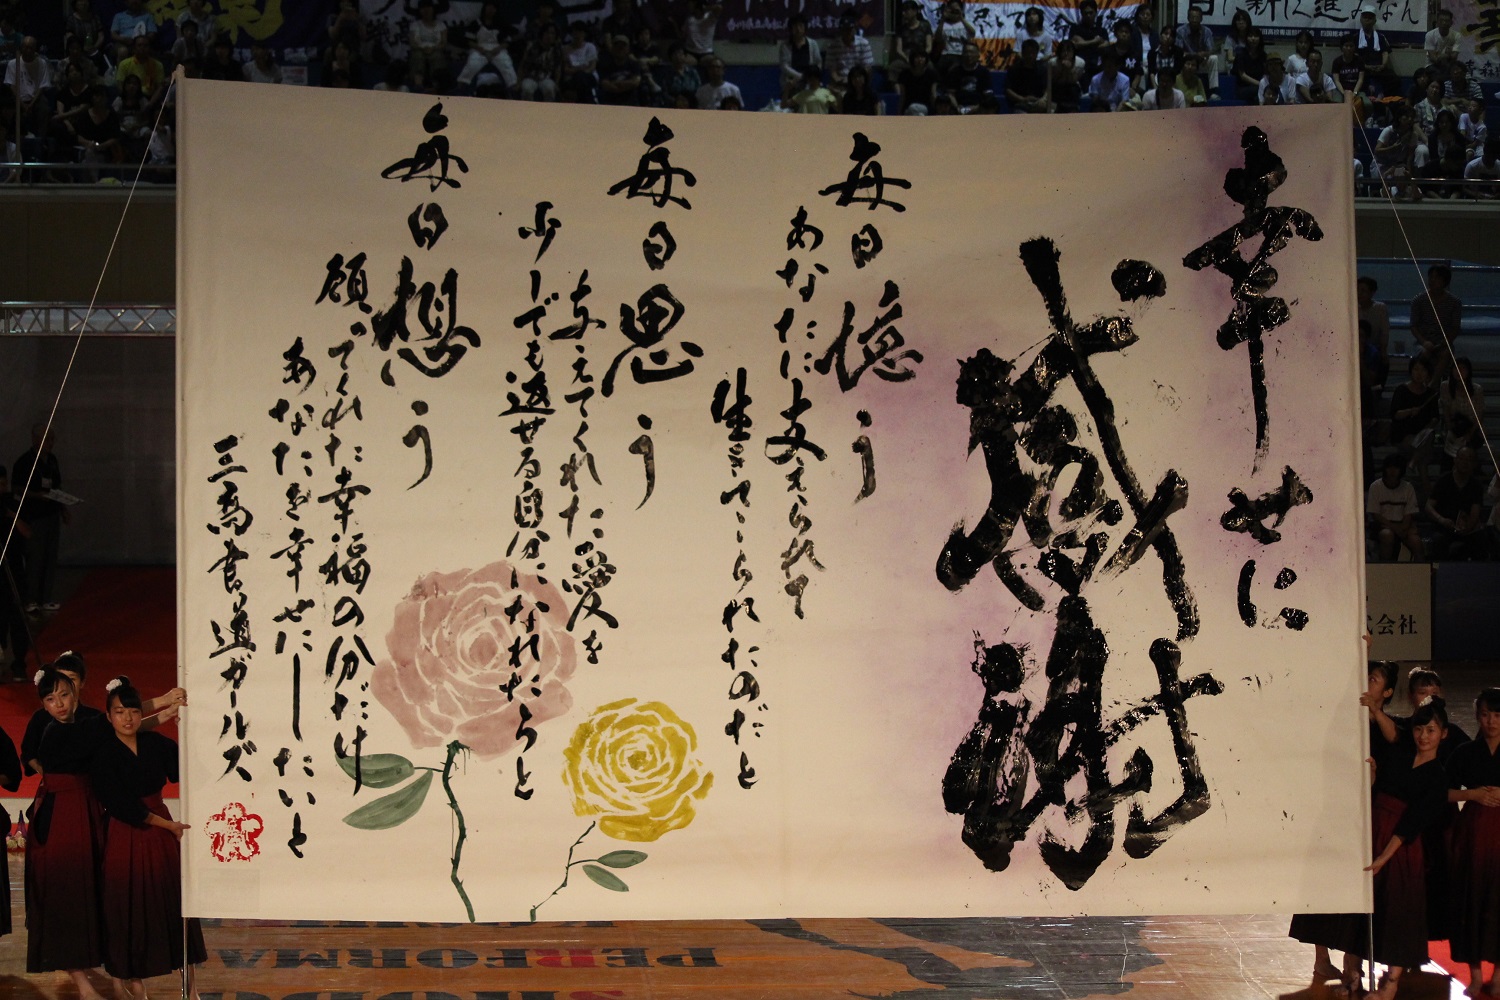 幸せに
感謝
毎日憶う
あなたに支えられて
生きてこられたのだと
毎日思う
支えてくれた愛を
少しでも返せる自分になれたらと
毎日想う
願ってくれた幸福の分だけ
あなたを幸せにしたいと
三高書道ガールズ
式会社
PERFORMA
SHODO